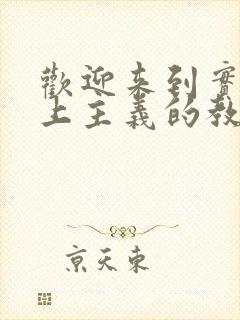 歡迎来到實
上主義的教
京天東